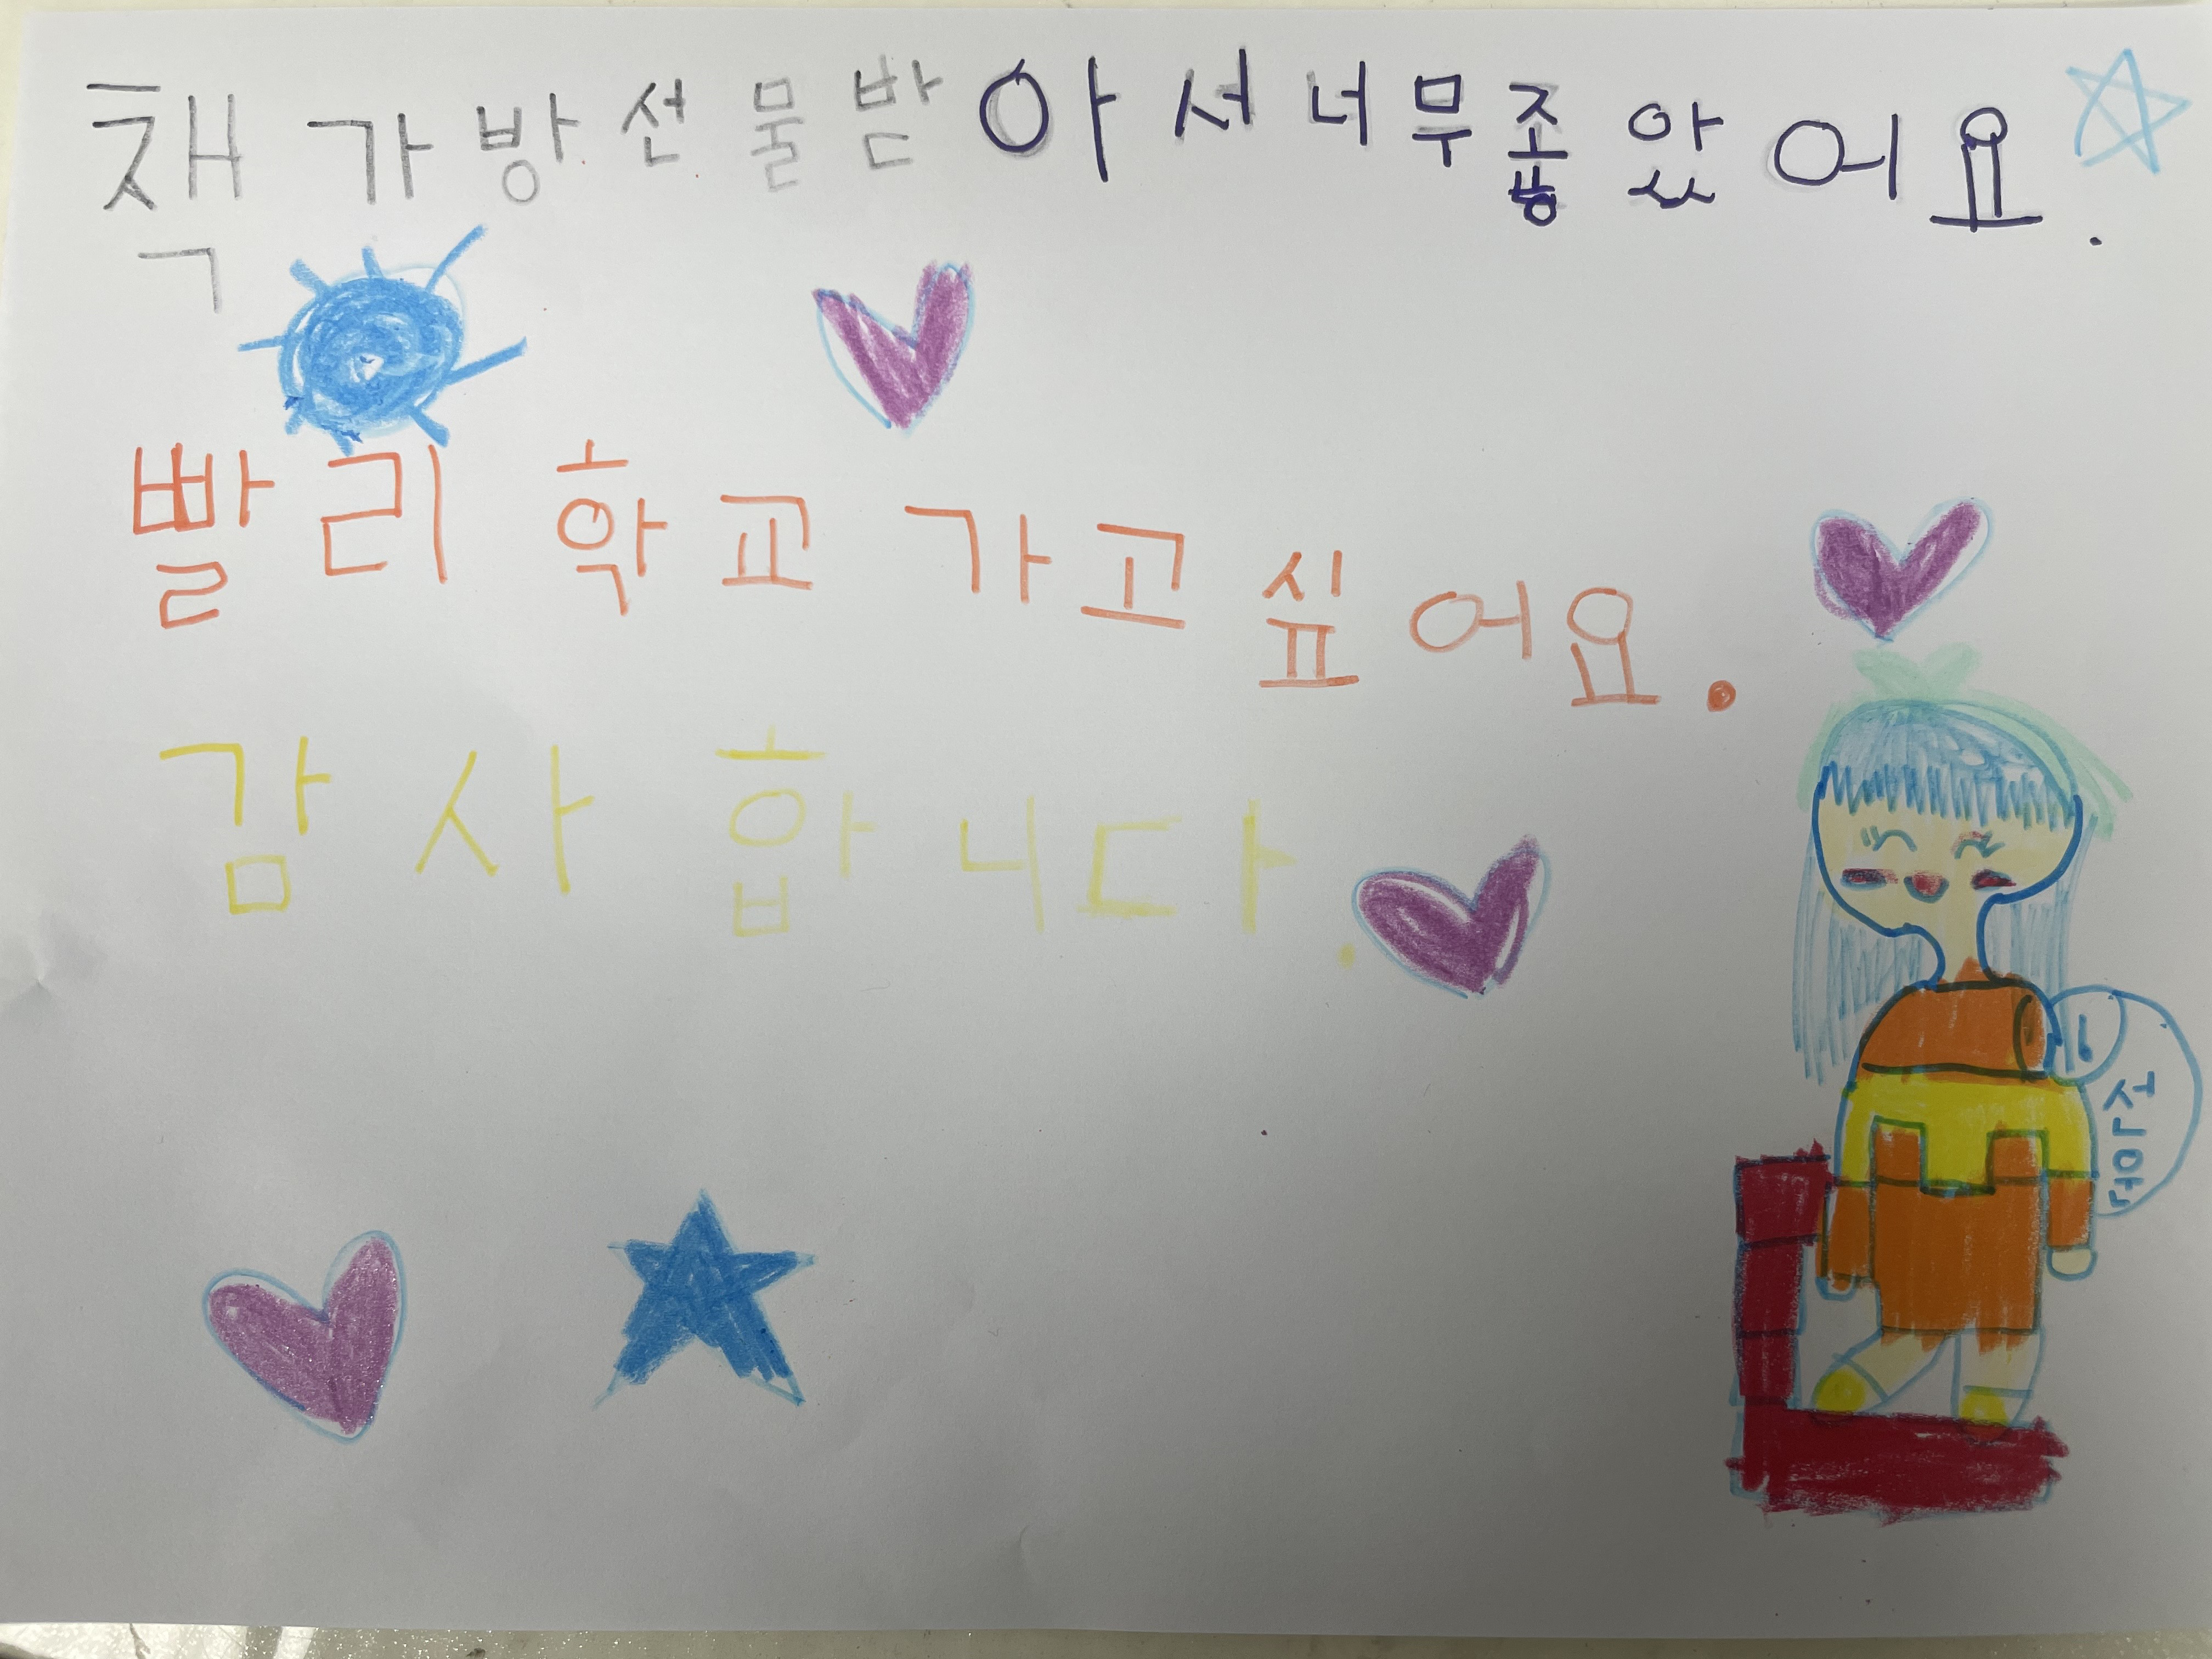 책가방선물받아서너무좋았어요.
빨리 학교 가고 싶어요.
감사합니다.